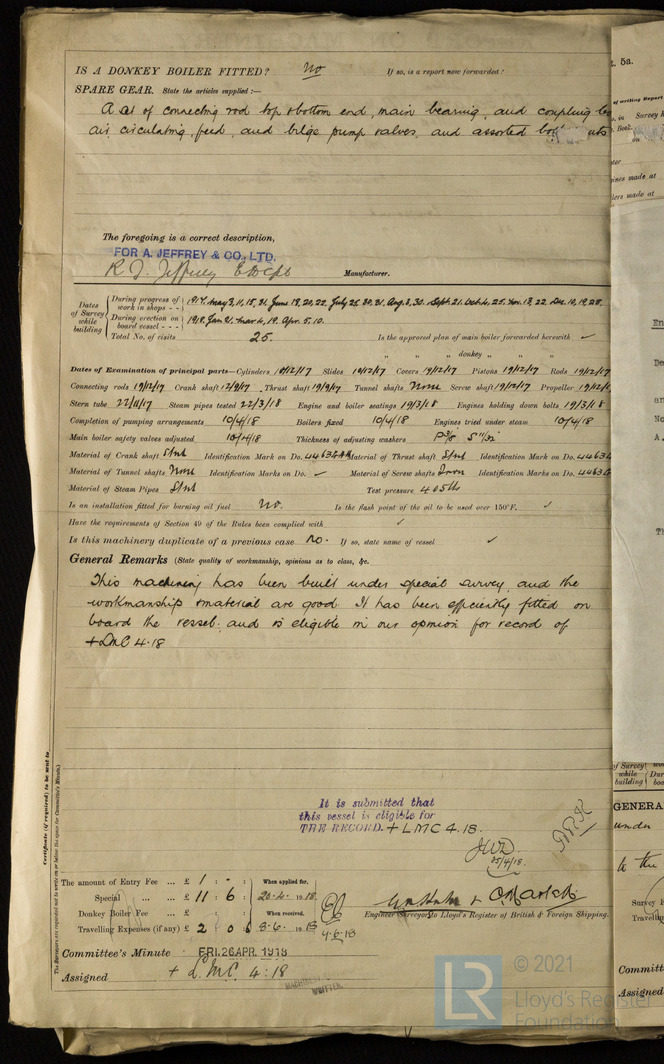 IS A DONKEY BOILER FITTED? No If so, is a report now forwarded?
SPARE GEAR. State the articles supplied :—
A set of connecting rod top & bottom end, main bearing, and coupling
air, circulating, feed, and bilge pump valves, and assorted
The foregoing is a correct description,
FOR A. JEFFREY & CO., LTD.
Jeffrey Manufacturer.
Dates of Survey while building
During progress of work in shops - - 1917. May 3, 11, 15, 31. June 19, 20, 22. July 25, 30, 31. Aug. 8, 30. Sept. 21. Oct. 4, 25. Nov. 13, 22. Dec. 10, 19, 28.
During erection on board vessel - - - 1918. Jan 21. Mar. 4, 19. Apr. 5, 10.
Total No. of visits 25. Is the approved plan of main boiler forwarded herewith ✓
" " " donkey " " "
Dates of Examination of principal parts—Cylinders 19/12/17 Slides 19/12/17 Covers 19/12/17 Pistons 19/12/17 Rods 19/12/17
Connecting rods 19/12/17 Crank shaft 12/9/17 Thrust shaft 19/9/17 Tunnel shafts None Screw shaft 19/12/17 Propeller 19/12/1
Stern tube 22/11/17 Steam pipes tested 22/3/18 Engine and boiler seatings 19/3/18 Engines holding down bolts 19/3/18
Completion of pumping arrangements 10/4/18 Boilers fixed 10/4/18 Engines tried under steam 10/4/18
Main boiler safety valves adjusted 10/4/18 Thickness of adjusting washers
Material of Crank shaft Steel Identification Mark on Do. Material of Thrust shaft Steel Identification Mark on Do.
Material of Tunnel shafts None Identification Marks on Do. ✓ Material of Screw shafts Iron Identification Marks on Do.
Material of Steam Pipes Steel Test pressure 405 lbs
Is an installation fitted for burning oil fuel No. Is the flash point of the oil to be used over 150°F. ✓
Have the requirements of Section 49 of the Rules been complied with ✓
Is this machinery duplicate of a previous case No. If so, state name of vessel ✓
General Remarks (State quality of workmanship, opinions as to class, &c.
This machinery has been built under special survey, and the
workmanship & material are good. It has been efficiently fitted on
board the vessel, and is eligible in our opinion for record of
+ LMC 4.18
Certificate (if required) to be sent to
(The Surveyors are requested not to write on or below the space for Committee's Minute.)
It is submitted that
this vessel is eligible for
THE RECORD. + LMC 4.18.
25/4/18.
The amount of Entry Fee ... £ 1 : - : When applied for,
Special ... ... £ 11 : 6 : 20.4.1918
Donkey Boiler Fee ... £ : : When received,
Travelling Expenses (if any) £ 2 : 0 : 6 3-6-1918
4.6.18
Engineer Surveyor to Lloyd's Register of British & Foreign Shipping.
Committee's Minute FRI. 26 APR. 1918
Assigned + LMC 4:18
WRITTEN.
5a.
GENERA
© 2021
LR Lloyd's Register
Foundation